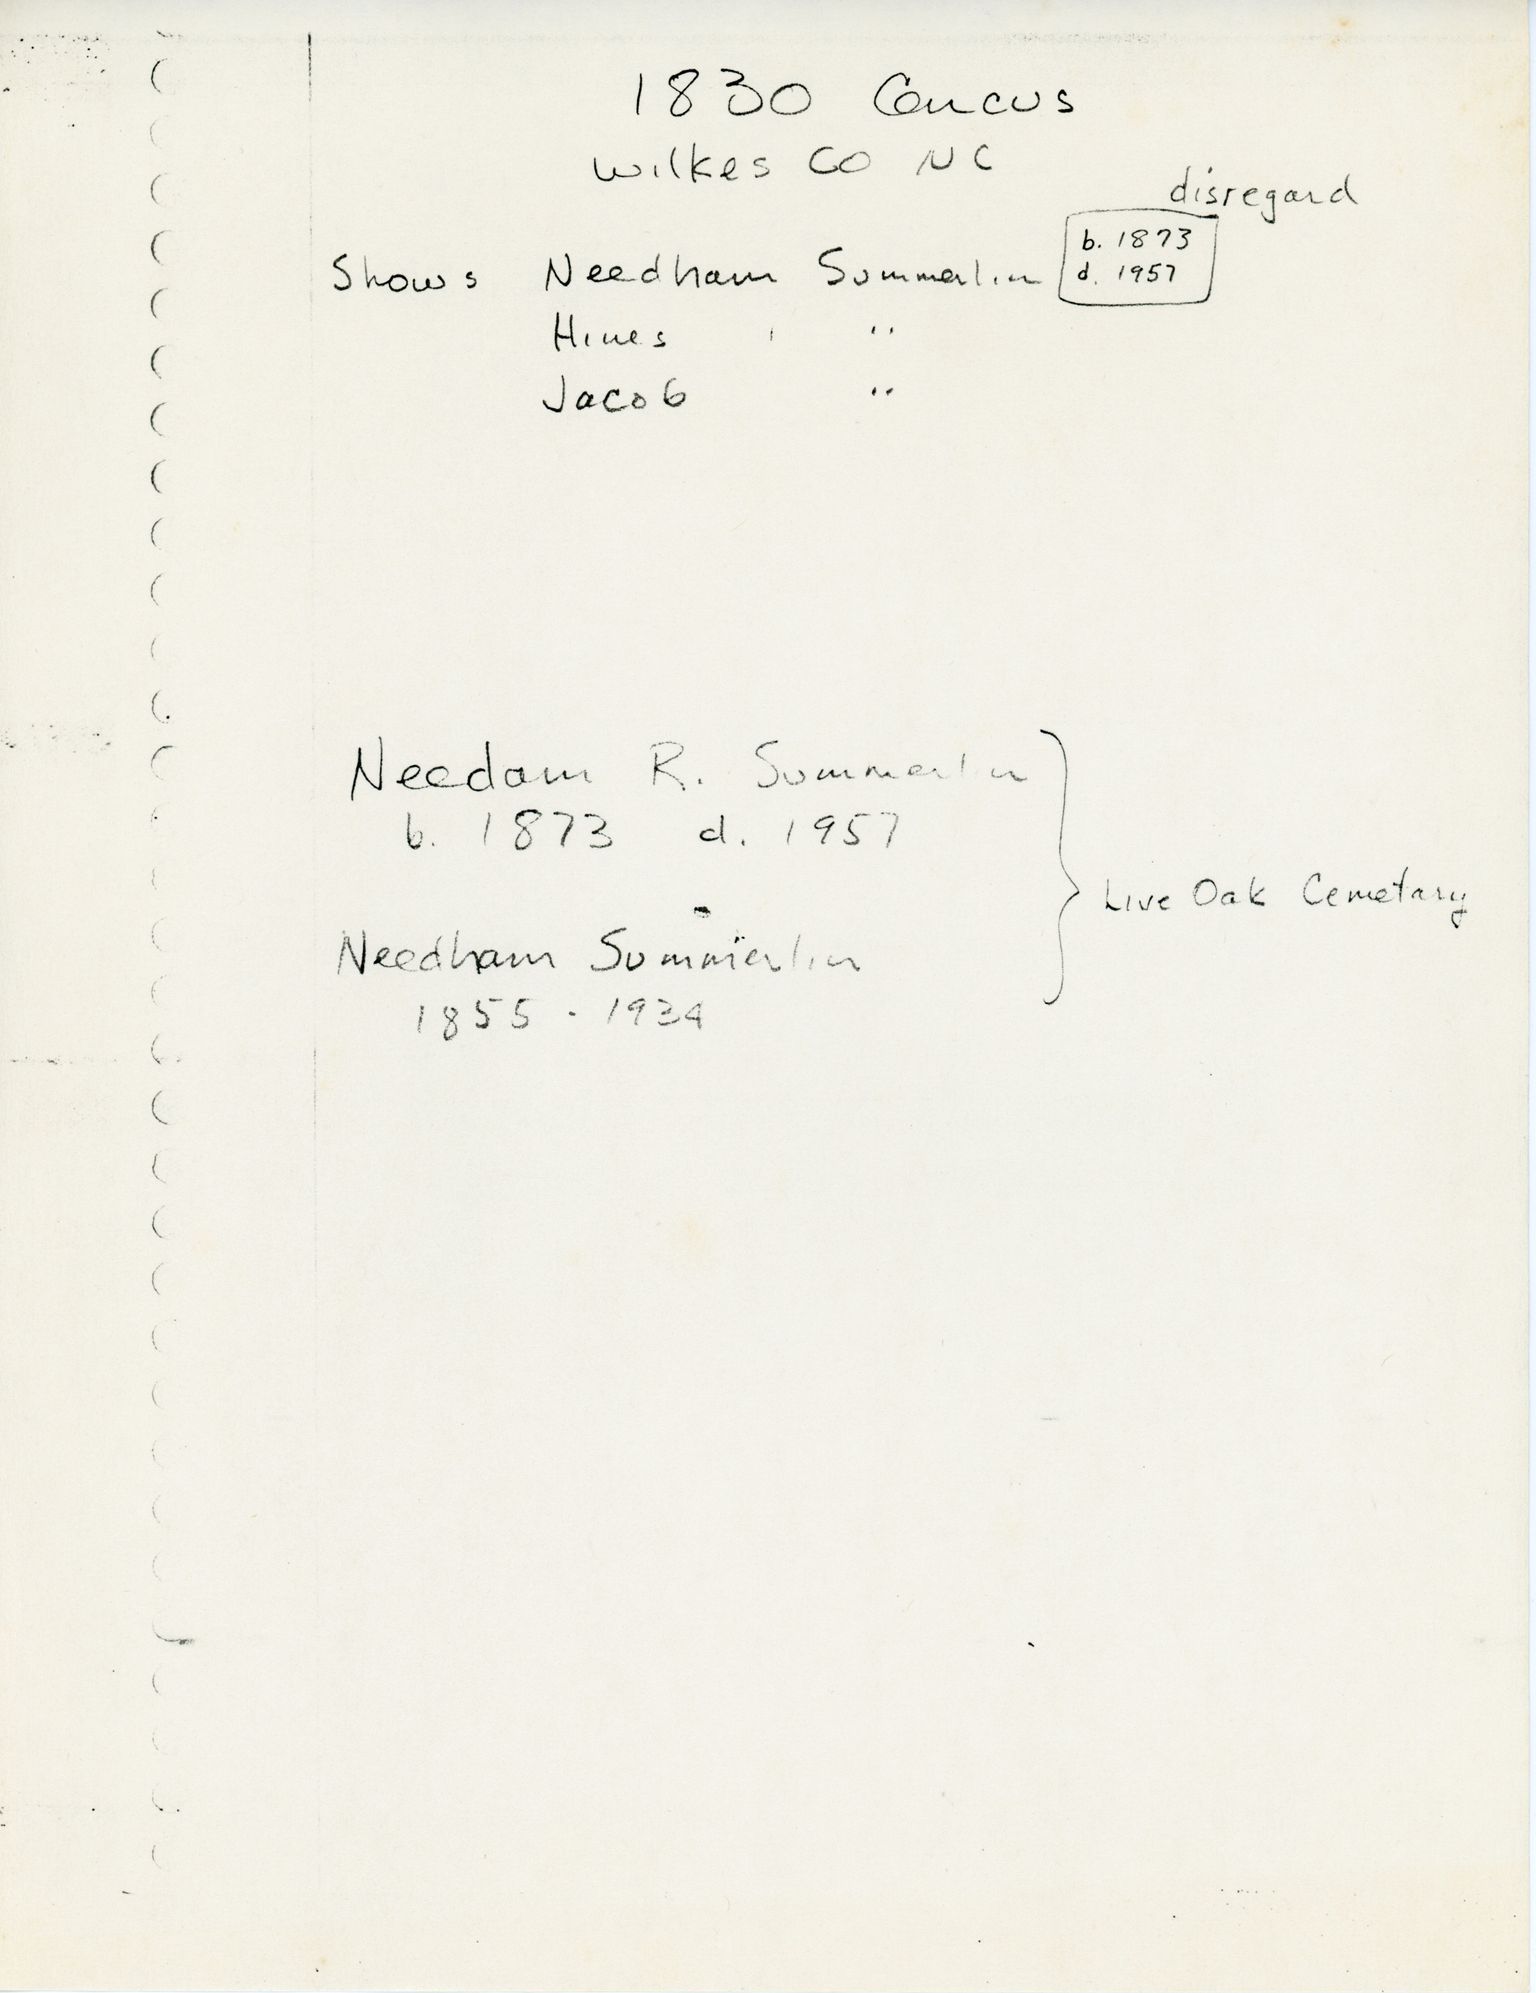 1830 Cencus
Wilkes Co NC
disregard
Shows Needham Summerlin
b. 1873
d. 1957
Hines "
Jacob "
Needam R. Summerlin
b. 1873 d. 1957
Live Oak Cemetary
Needham Summerlin
1855 - 1934